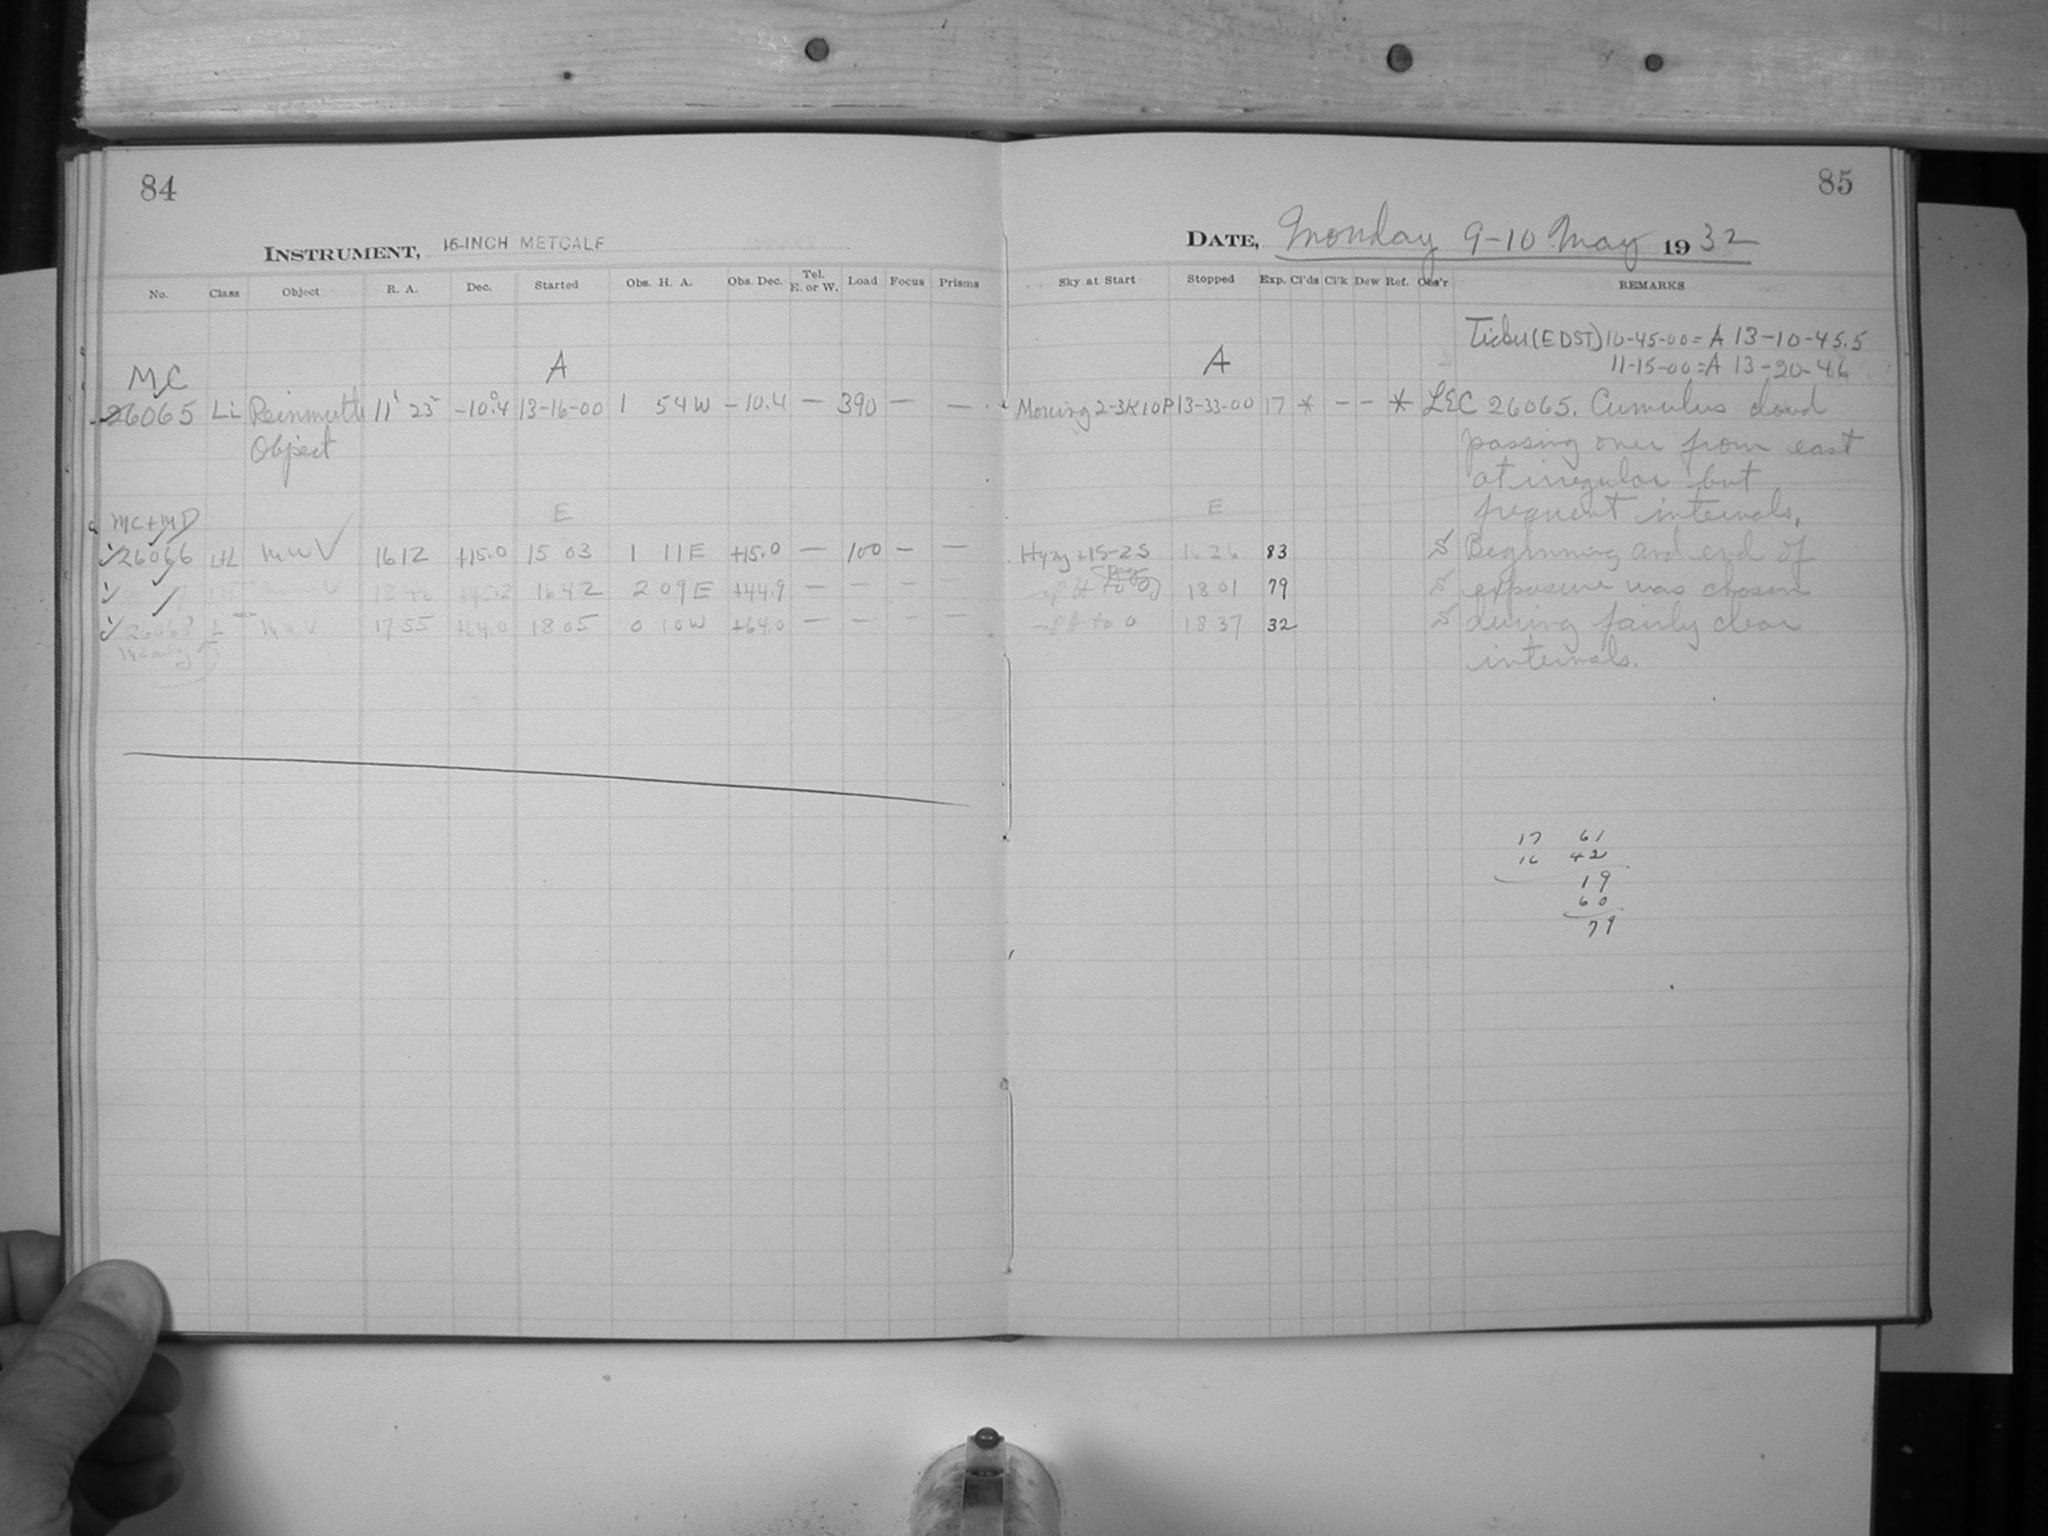 84
INSTRUMENT, 16-INCH METCALF
No. Class Object R. A. Dec. Started Obs. H. A. Obs. Dec. Tel. E. or W. Load Focus Prisms
MC A
26065 Li Reinmuth 11h 25m -10°.4 13-16-00 1 54W -10.4 — 390 — —
Object
MC+MD E
26066 mwV 1612 +15.0 15 03 1 11E +15.0 — 100 — —
1642 2 09E +44.9 — — — —
L mwV 1755 +64.0 1805 0 10W +64.0 — — — —
85
DATE, Monday 9-10 May 1932
Sky at Start Stopped Exp. Cl'ds Cl'k Dew Ref. Obs'r REMARKS
Ticker (EDST) 10-45-00 = A 13-10-45.5
A 11-15-00 = A 13-20-46
Moving 2-3K10P 13-33-00 17 * — — * LEC 26065. Cumulus cloud
passing over from east
at irregular but
E frequent intervals.
Hyzy +15-25 1626 83 S Beginning and end of
1801 79 S exposure was chosen
to 0 1837 32 S during fairly clear
intervals.
17 61
16 42
19
60
79